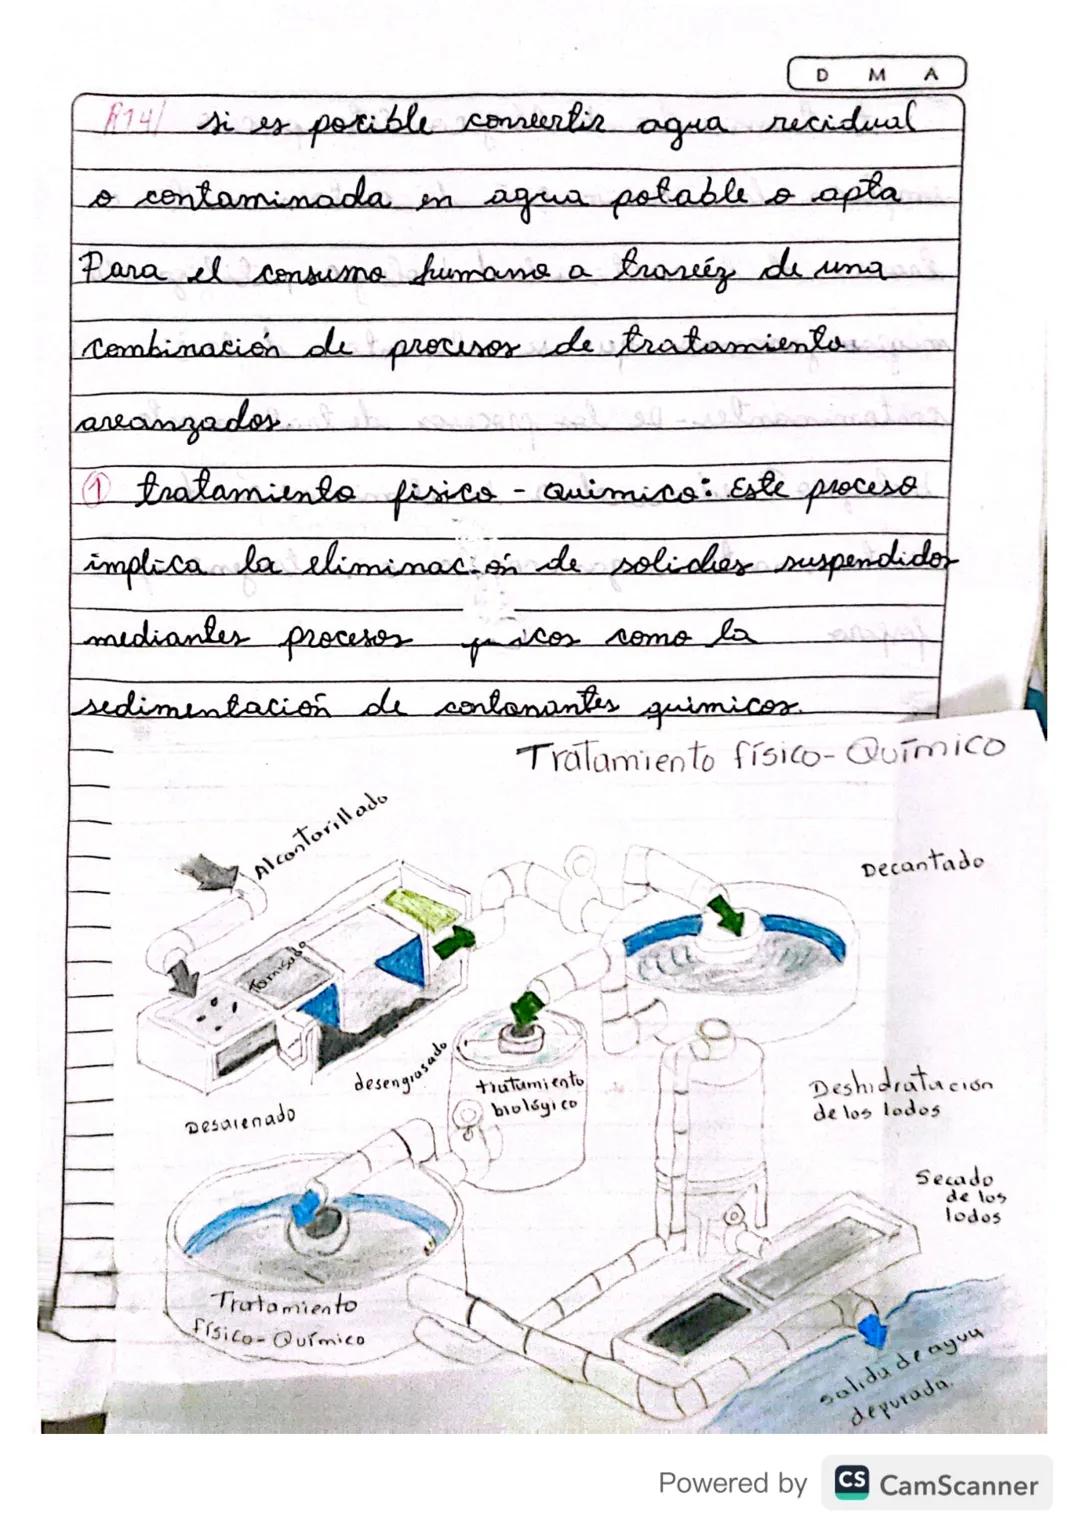 D M A
R14/ si es pocible convertir agua recidual
o contaminada en agua potable o apta
Para el consumo humano a travéz de una
combinación de procesos de tratamiento
avanzados
1 tratamiento fisico - Quimico: Este proceso
implica la eliminación de solidos suspendidos
mediantes procesos como la
sedimentación de contanantes quimicos.
Tratamiento físico-Químico
Alcantarillado
Decantado
Tamisado
desengrasado
tratamiento
biológico
Desarenado
Deshidratación
de los lodos
Secado
de los
lodos
Tratamiento
físico-Químico
salida de agua
depurada.
Powered by CS CamScanner